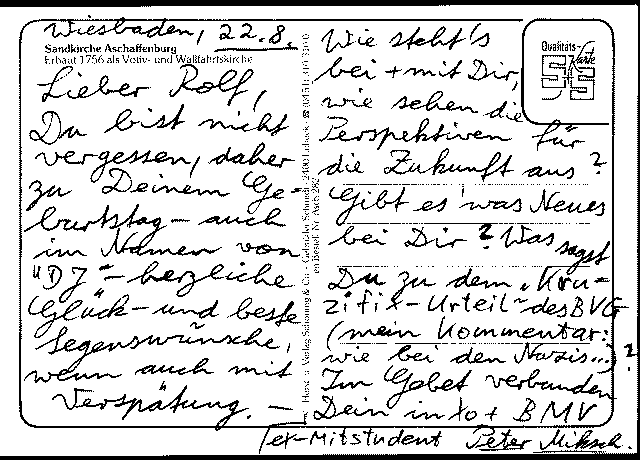 Wiesbaden, 22.8.
Sandkirche Aschaffenburg
Erbaut 1756 als Votiv- und Wallfahrtskirche
Lieber Rolf,
Du bist nicht
vergessen, daher
zu Deinem Ge-
burtstag - auch
im Namen von
"DJ" - herzliche
Glück- und beste
Segenswünsche,
wenn auch mit
Verspätung. —
Wie steht's
bei + mit Dir,
wie sehen die
Perspektiven für
die Zukunft aus?
Gibt es was Neues
bei Dir? Was sagst
Du zu dem „Kru-
zifix-Urteil" des BVG
(mein Kommentar:
wie bei den Nazis...)?
Im Gebet verbunden
Dein in Xo + BMV
ex-Mitstudent Peter
Qualitäts-
Karte
S+S
Verlag Schöning & Co + Gebrüder Schmidt